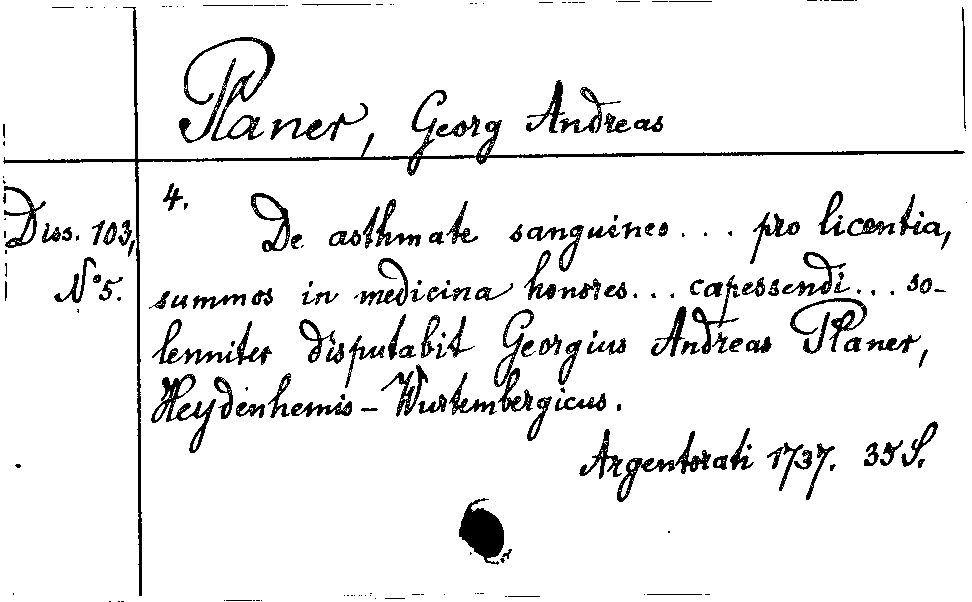 Planer, Georg Andreas
4.
Diss. 103,
N°5.
De asthmate sanguineo ... pro licentia,
summos in medicina honores ... capessendi ... so-
lenniter disputabit Georgius Andreas Planer,
Heydenhemis-Wurtembergicus.
Argentorati 1737. 35 S.